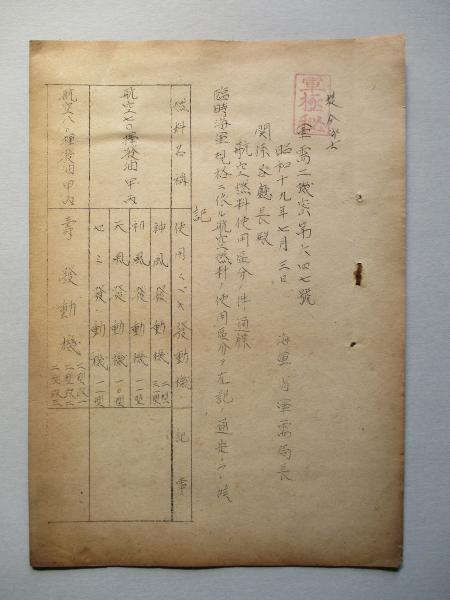 軍極秘
軍需二機密第六四七號
昭和十九年七月三日
海軍省軍需局長
関係各廳長殿
航空燃料使用區分ノ件通牒
臨時海軍規格ニ依ル航空燃料ノ使用區分ヲ左記ノ通定
記
燃料名稱 使用スベキ發動機 記事
航空七〇揮發油甲、丙
神風發動機 二型 三型
初風發動機 一一型
天風發動機 一〇型
七三發動機 一一型
航空八〇揮發油甲、丙
壽發動機 二型改一 二型改二 二型改三